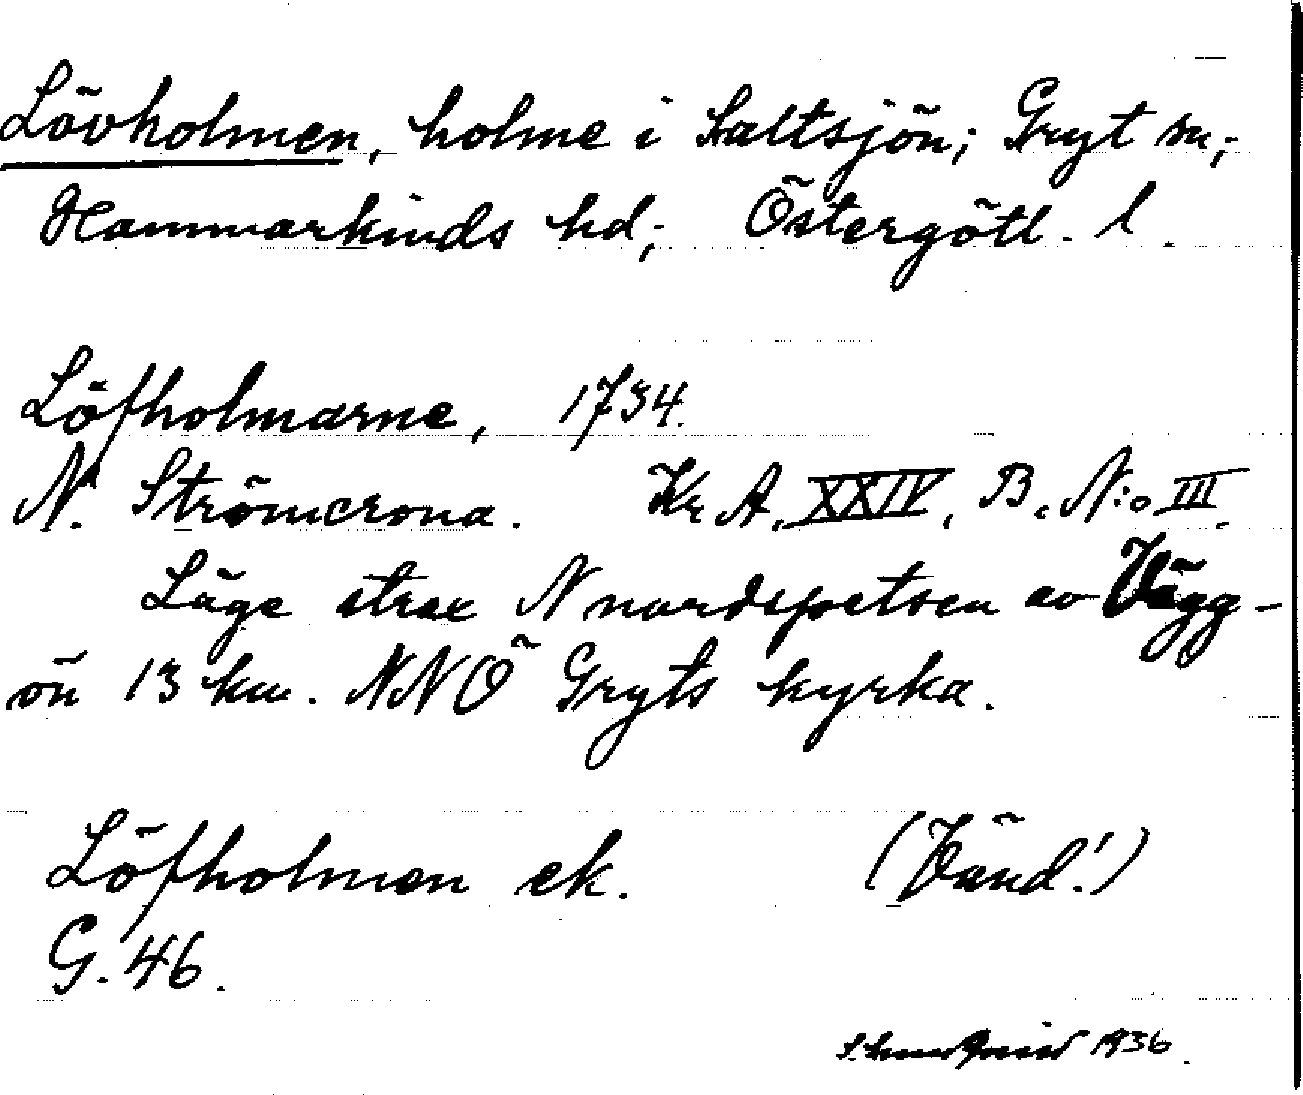 Lövholmen, holme i Saltsjön; Gryt sn;
Hammarkinds hd; Östergötl. l.
Löfholmarne, 1734.
N. Strömcrona. Kr. A. XXIV, B. N:o III.
Läge strax N nordspetsen av Vägg-
ön 13 km. NNÖ Gryts kyrka.
Löfholmen ek. (Vänd!)
G. 46.
1936